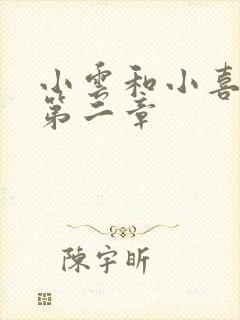 小雲和小喜
第二章
陳宇昕